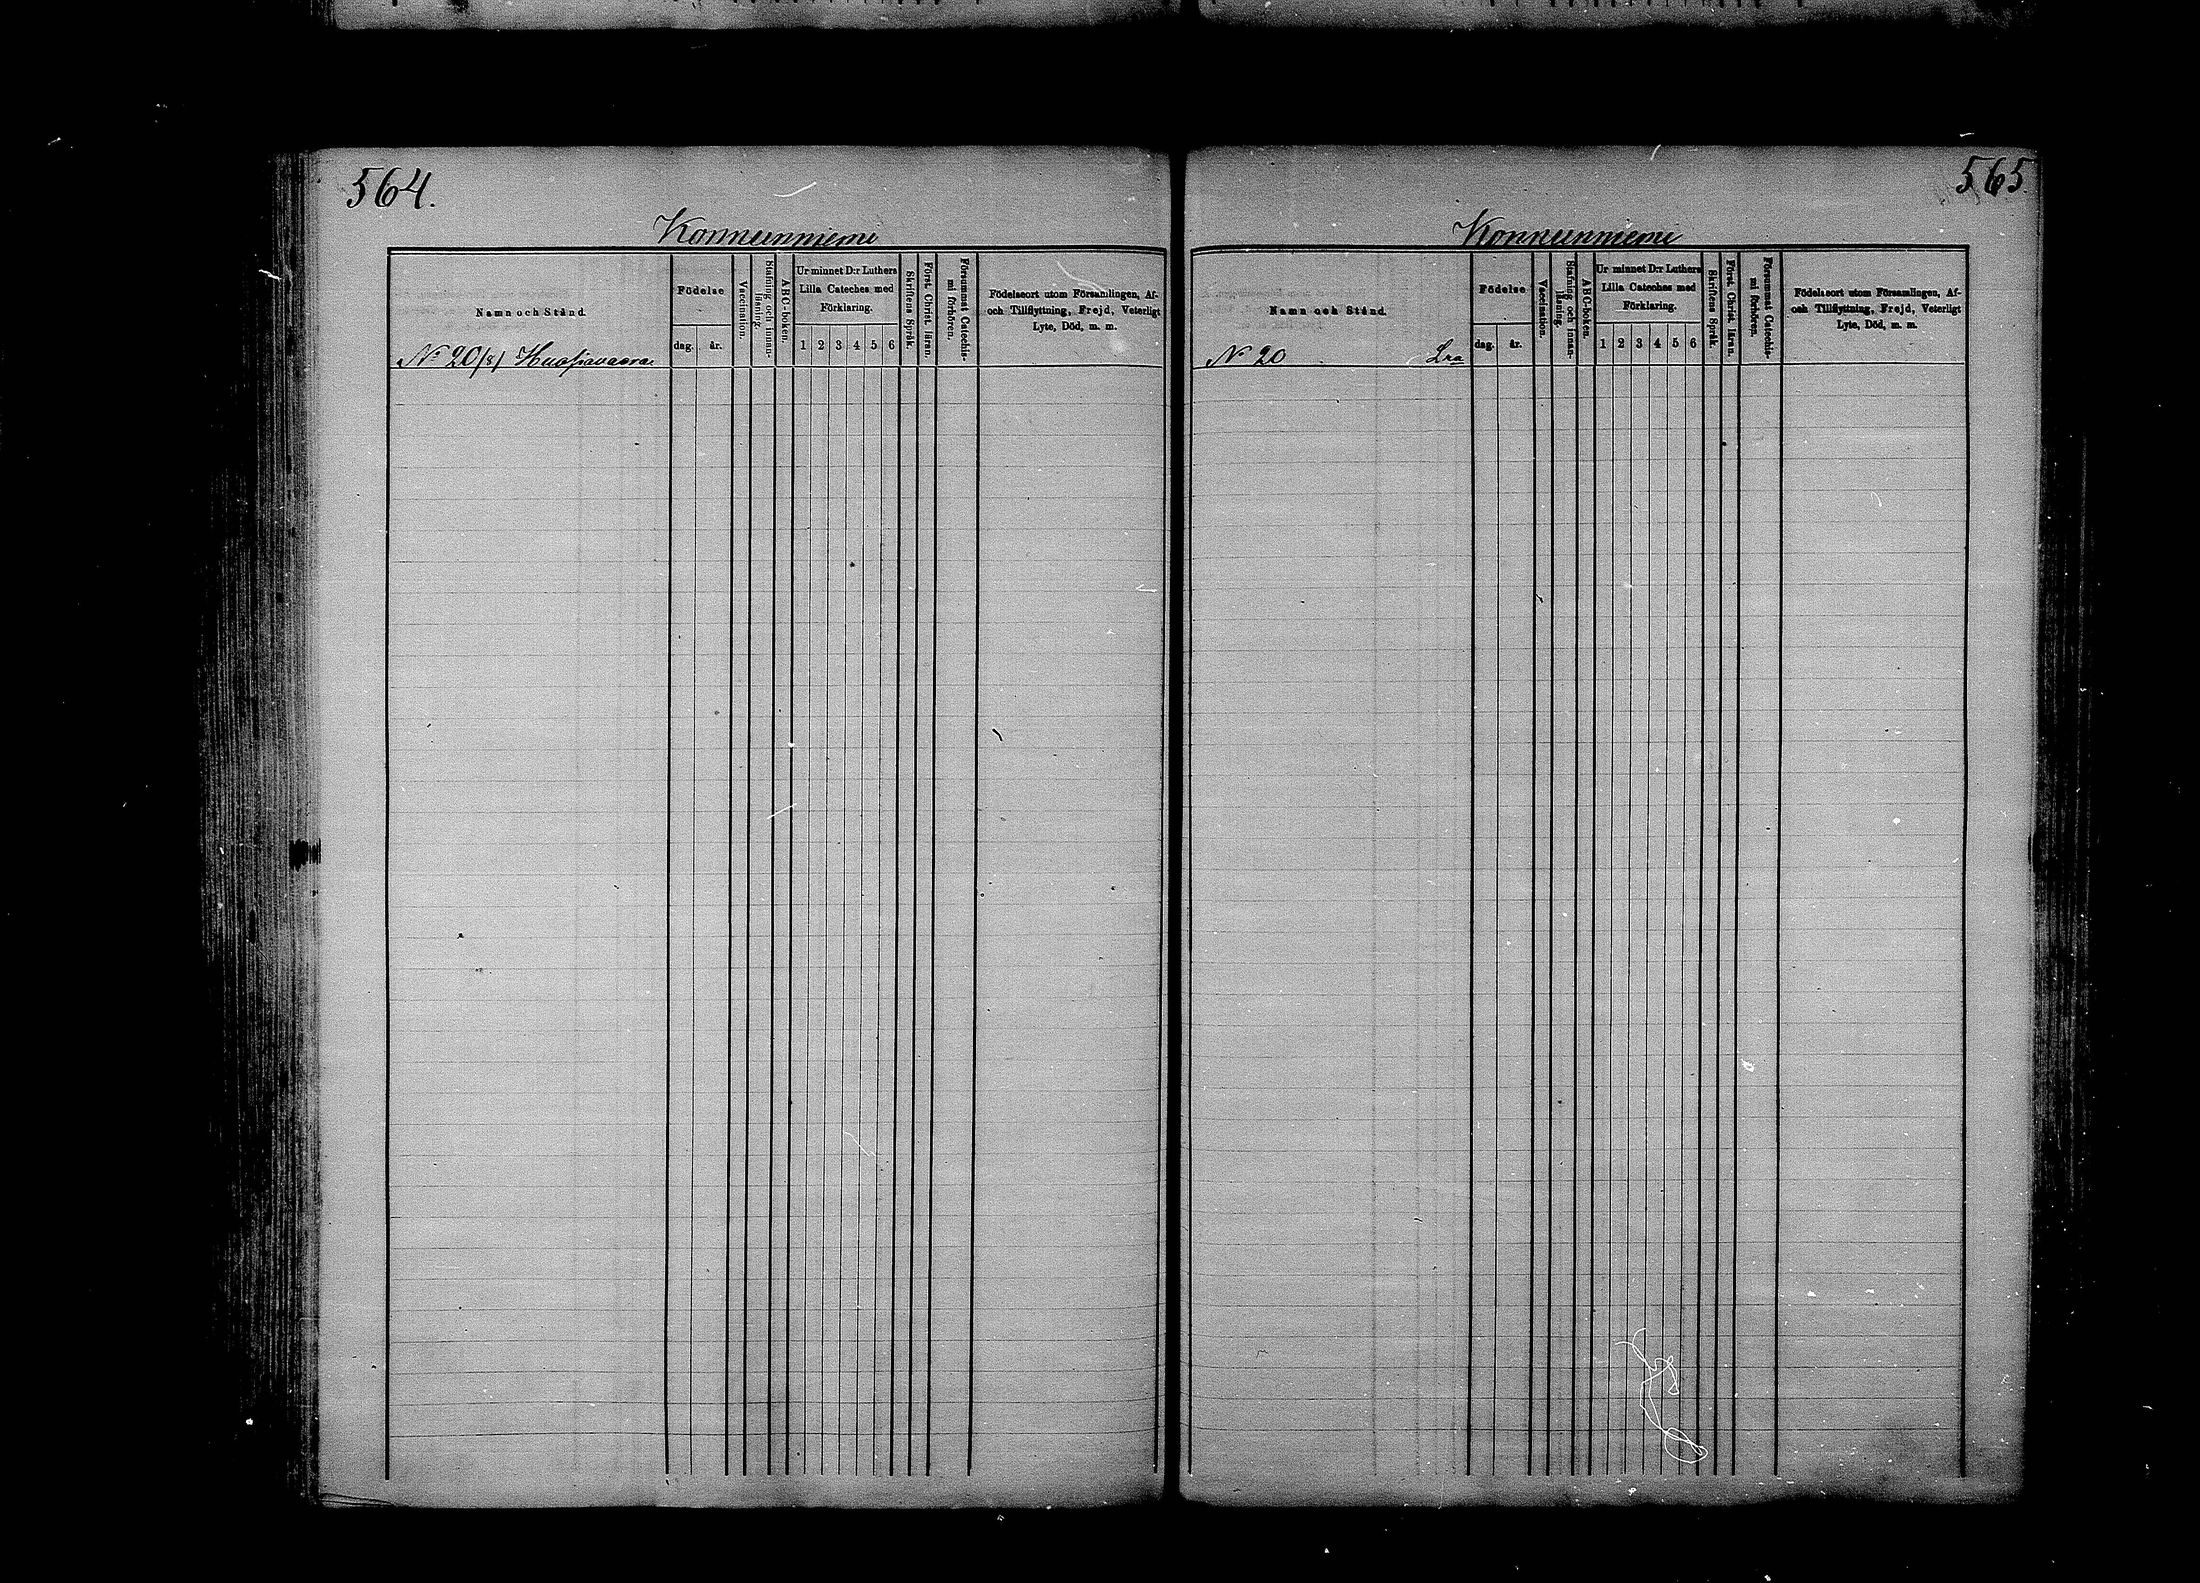 564.
Konnunniemi
Namn och Stånd.
Födelse
dag. år.
Vaccination.
Stafning och innan-
läsning.
ABC-boken.
Ur minnet D:r Luthers
Lilla Cateches med
Förklaring.
1 2 3 4 5 6
Skriftens Språk.
Först. Christ. läran.
Försummat Catechis-
mi förhören.
Födelseort utom Församlingen, Af-
och Tillflyttning, Frejd, Veterligt
Lyte, Död, m. m.
No 20 Huosiavaara
565
Konnunniemi
Namn och Stånd.
Födelse
dag. år.
Vaccination.
Stafning och innan-
läsning.
ABC-boken.
Ur minnet D:r Luthers
Lilla Cateches med
Förklaring.
1 2 3 4 5 6
Skriftens Språk.
Först. Christ. läran.
Försummat Catechis-
mi förhören.
Födelseort utom Församlingen, Af-
och Tillflyttning, Frejd, Veterligt
Lyte, Död, m. m.
No 20 Lra